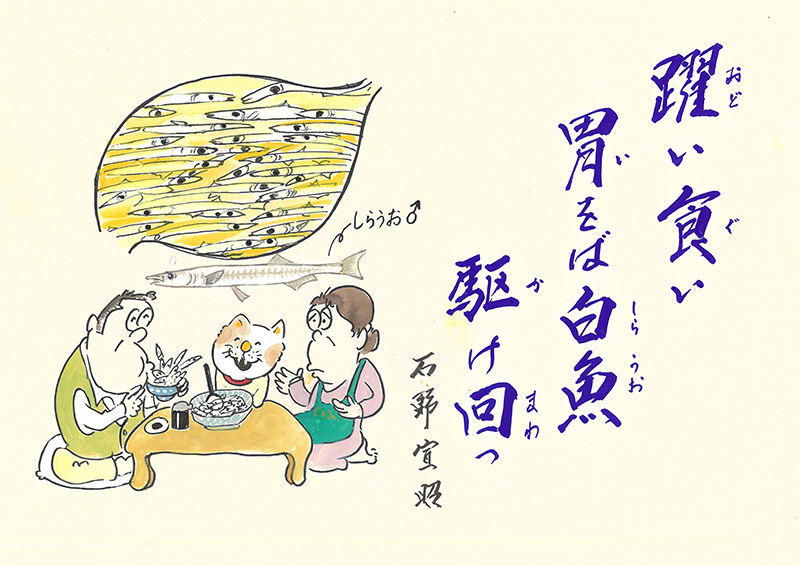 躍い食い
胃をば白魚
駆け回っ
石野宣昭
しらうお♂
おど
ぐ
い
しら うお
か
まわ